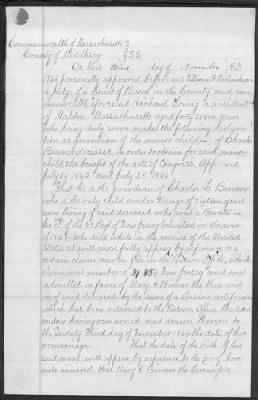 Commonwealth of Massachusetts }
County of Middlesex } SS.
On this third day of November A.D.
personally appeared before me William A Richardson
a Judge of a Court of Record in the County and com-
monwealth aforesaid Richard Young a resident
of Malden Massachusetts aged forty seven years
who being duly sworn makes the following declara-
tion as Guardian of the minor child of Charles
Benner deceased, in order to obtain for said minor
child the benefit of the acts of Congress App-oved
July 14, 1862 and July 25 1866
That he is the guardian of Charles L. Benner
who is the only child under the age of sixteen years
now living of said deceased who was a Private in
Co. Regt of New Jersey Volunteers in the war
of 1861 who died while in the service of the United
States as will more fully appear by reference to a
certain claim now on file in the Pension Office, which
claim was numbered New Jersey and was
admitted in favor of Mary A. Benner the then wid-
ow of said deceased by the issue of a Pension certificate
which has been returned to the Pension Office the said
widow having remarried, and drawn Pension to
the Twenty Third day of November 1864 the date of her
remarriage. That the date of the birth of his
said ward will appear by reference to the proof here-
unto annexed. that Mary A Benner the